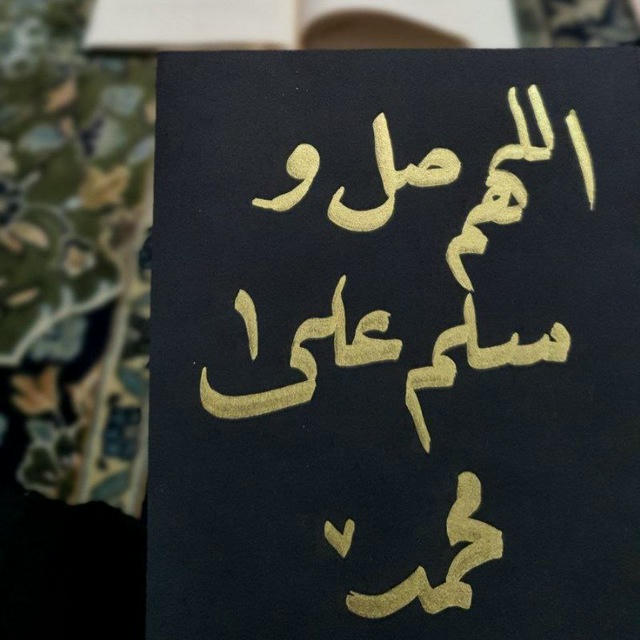 اللهم صل و
سلم على ا
محمد